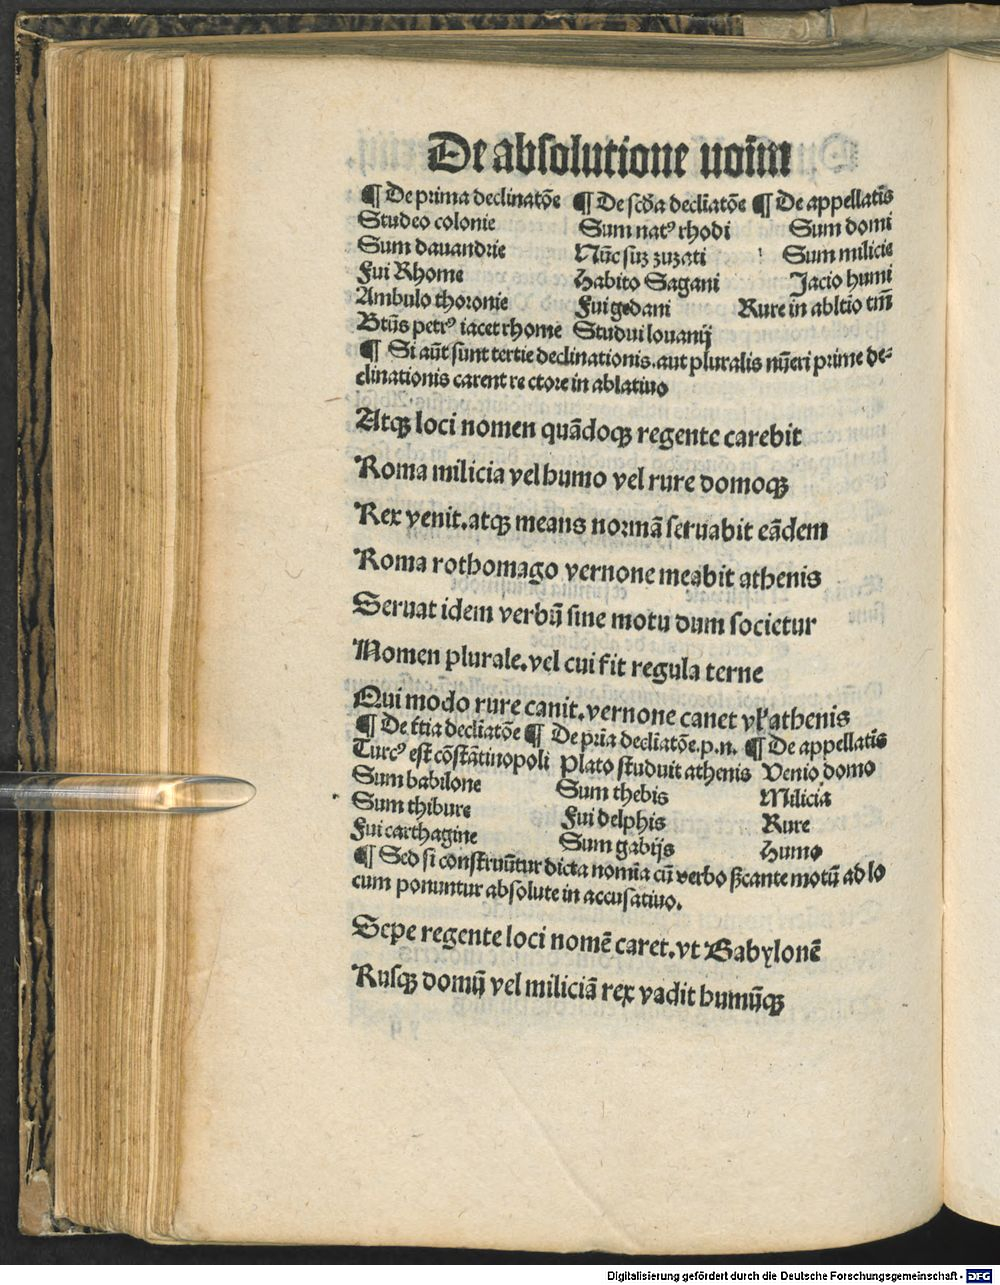 De absolutione noīm
¶ De prima declinatōe ¶ De scd̄a declīatōe ¶ De appellatīs
Studeo colonie Sum natꝰ rhodi Sum domi
Sum dauandrie Nūc suꝫ zuzati Sum milicie
Fui Rhome Habito Sagani Jacio humi
Ambulo thoronie Fui gedani Rure in abltīo tm̄
Btūs petrꝰ iacet rhome Studui louanij
¶ Si aūt sunt tertie declinationis. aut pluralis nūeri prime de⸗
clinationis carent rectore in ablatiuo
Atqꝫ loci nomen quādoqꝫ regente carebit
Roma milicia vel humo vel rure domoqꝫ
Rex venit. atqꝫ means normā seruabit eādem
Roma rothomago vernone meabit athenis
Seruat idem verbū sine motu dum societur
Nomen plurale. vel cui fit regula terne
Qui modo rure canit. vernone canet vl̓ athenis
¶ De t̄tia declīatōe ¶ De prīa declīatōe. p. n. ¶ De appellatīs
Turcꝰ est cōstātinopoli Plato studuit athenis Venio domo
Sum babilone Sum thebis Milicia
Sum thibure Fui delphis Rure
Fui carthagine Sum gabijs Humo
¶ Sed si construūtur dicta nomīa cū verbo sꝫcante motū ad lo
cum ponuntur absolute in accusatiuo.
Sepe regente loci nomē caret. vt Babylonē
Rusqꝫ domū vel miliciā rex vadit humūqꝫ
Digitalisierung gefördert durch die Deutsche Forschungsgemeinschaft - DFG